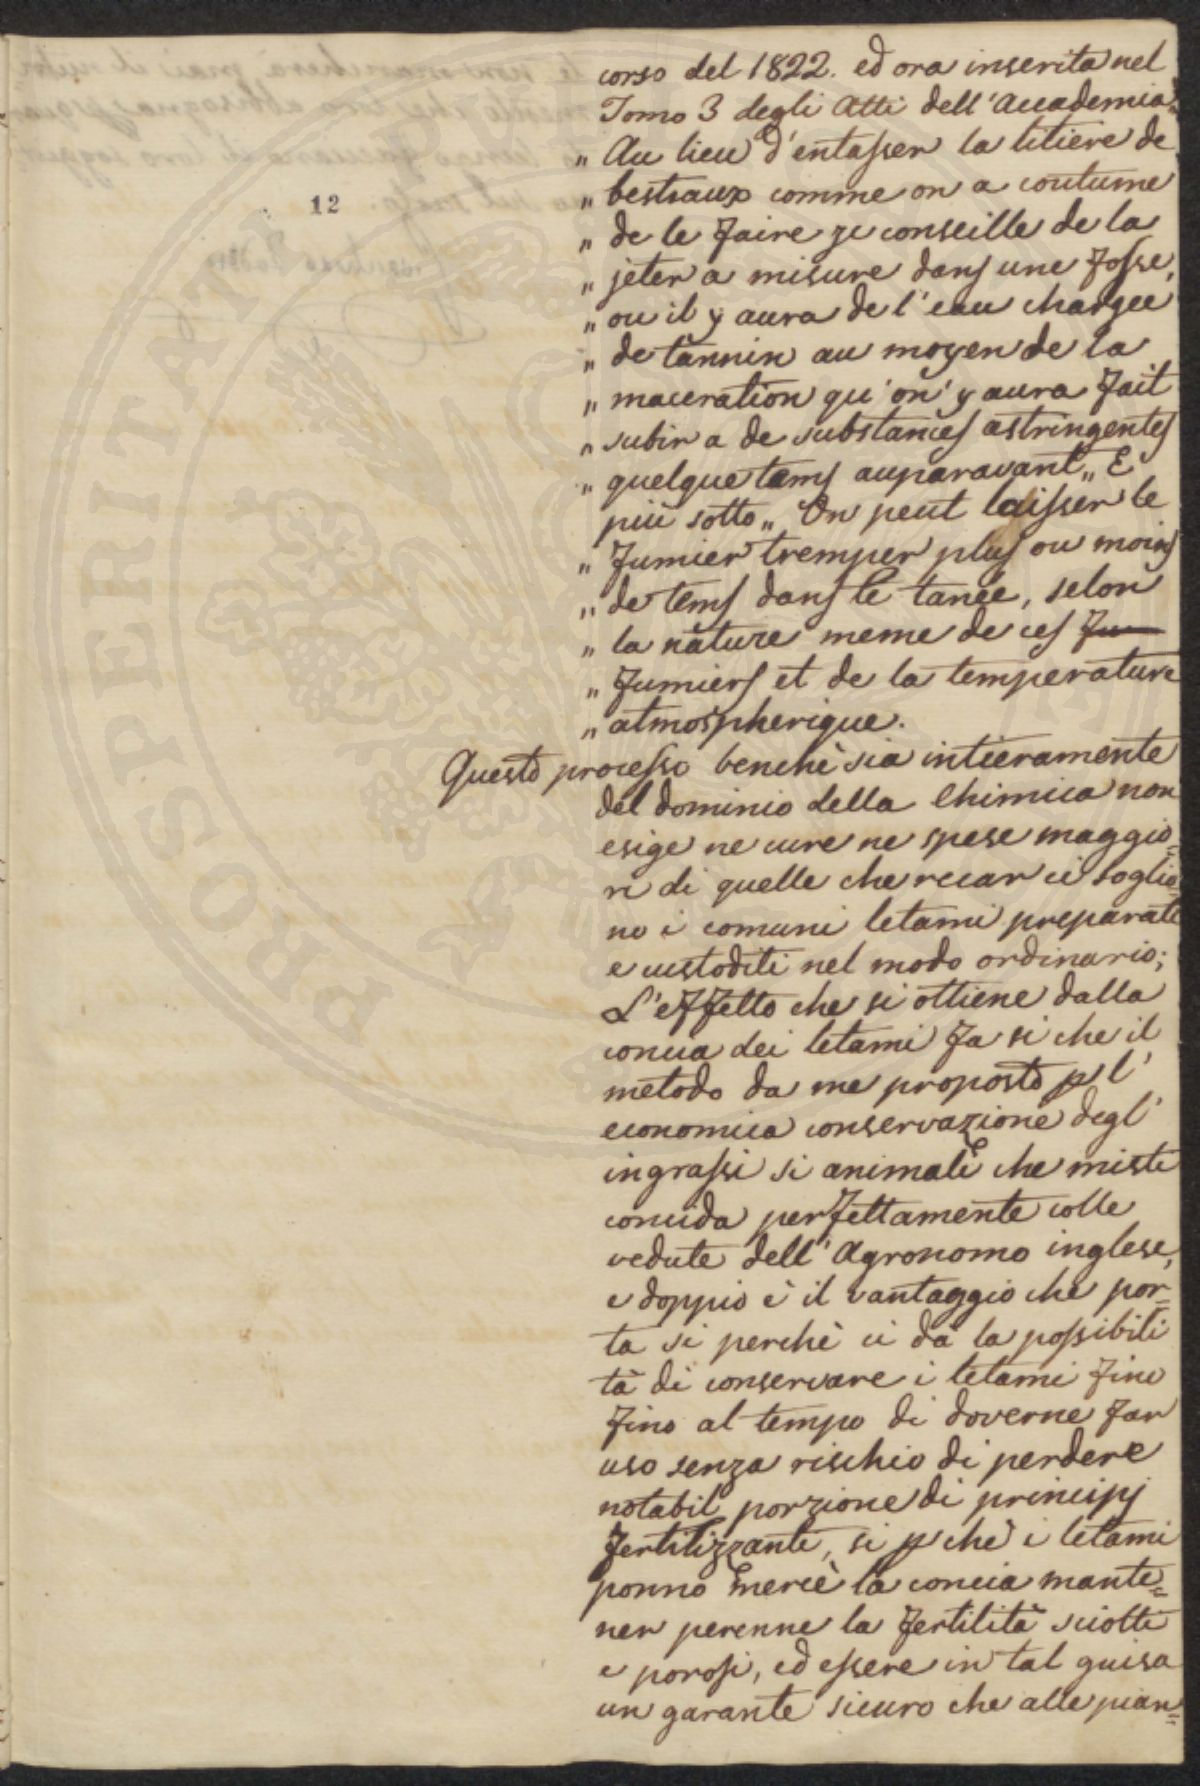 12
corso del 1822. ed ora inserita nel
Tomo 3 degli Atti dell'Accademia.
„ Au lieu d'entasser la litiere de
„ bestiaux comme on a coutume
„ de le faire je conseille de la
„ jeter a misure dans une fosse,
„ ou il y aura de l'eau chargee
„ de tannin au moyen de la
„ maceration qu'on y aura fait
„ subir a de substances astringentes
„ quelque tems auparavant „ E
più sotto „ On peut laisser le
„ fumier tremper plus ou moins
„ de tems dans le tanée, selon
„ la nature meme de ces fu
„ fumiers et de la temperature
„ atmospherique.
Questo processo benchè sia intieramente
del dominio della Chimica non
esige ne cure ne spese maggio=
ri di quelle che recar ci soglio=
no i comuni letami preparati
e custoditi nel modo ordinario;
L'effetto che si ottiene dalla
concia dei letami fa si che il
metodo da me proposto p l'
economica conservazione degl'
ingrassi si animali che misti
concida perfettamente colle
vedute dell'Agronomo inglese,
e doppio è il vantaggio che por=
ta si perchè ci dà la possibili
tà di conservare i letami fino
fino al tempo di doverne far
uso senza rischio di perdere
notabil porzione di principj
fertilizzanti, si p chè i letami
ponno mercè la concia mante=
ner perenne la fertilità sciolti
e porosi, ed essere in tal guisa
un garante sicuro che alle pian=
PROSPERITATI PUBLI